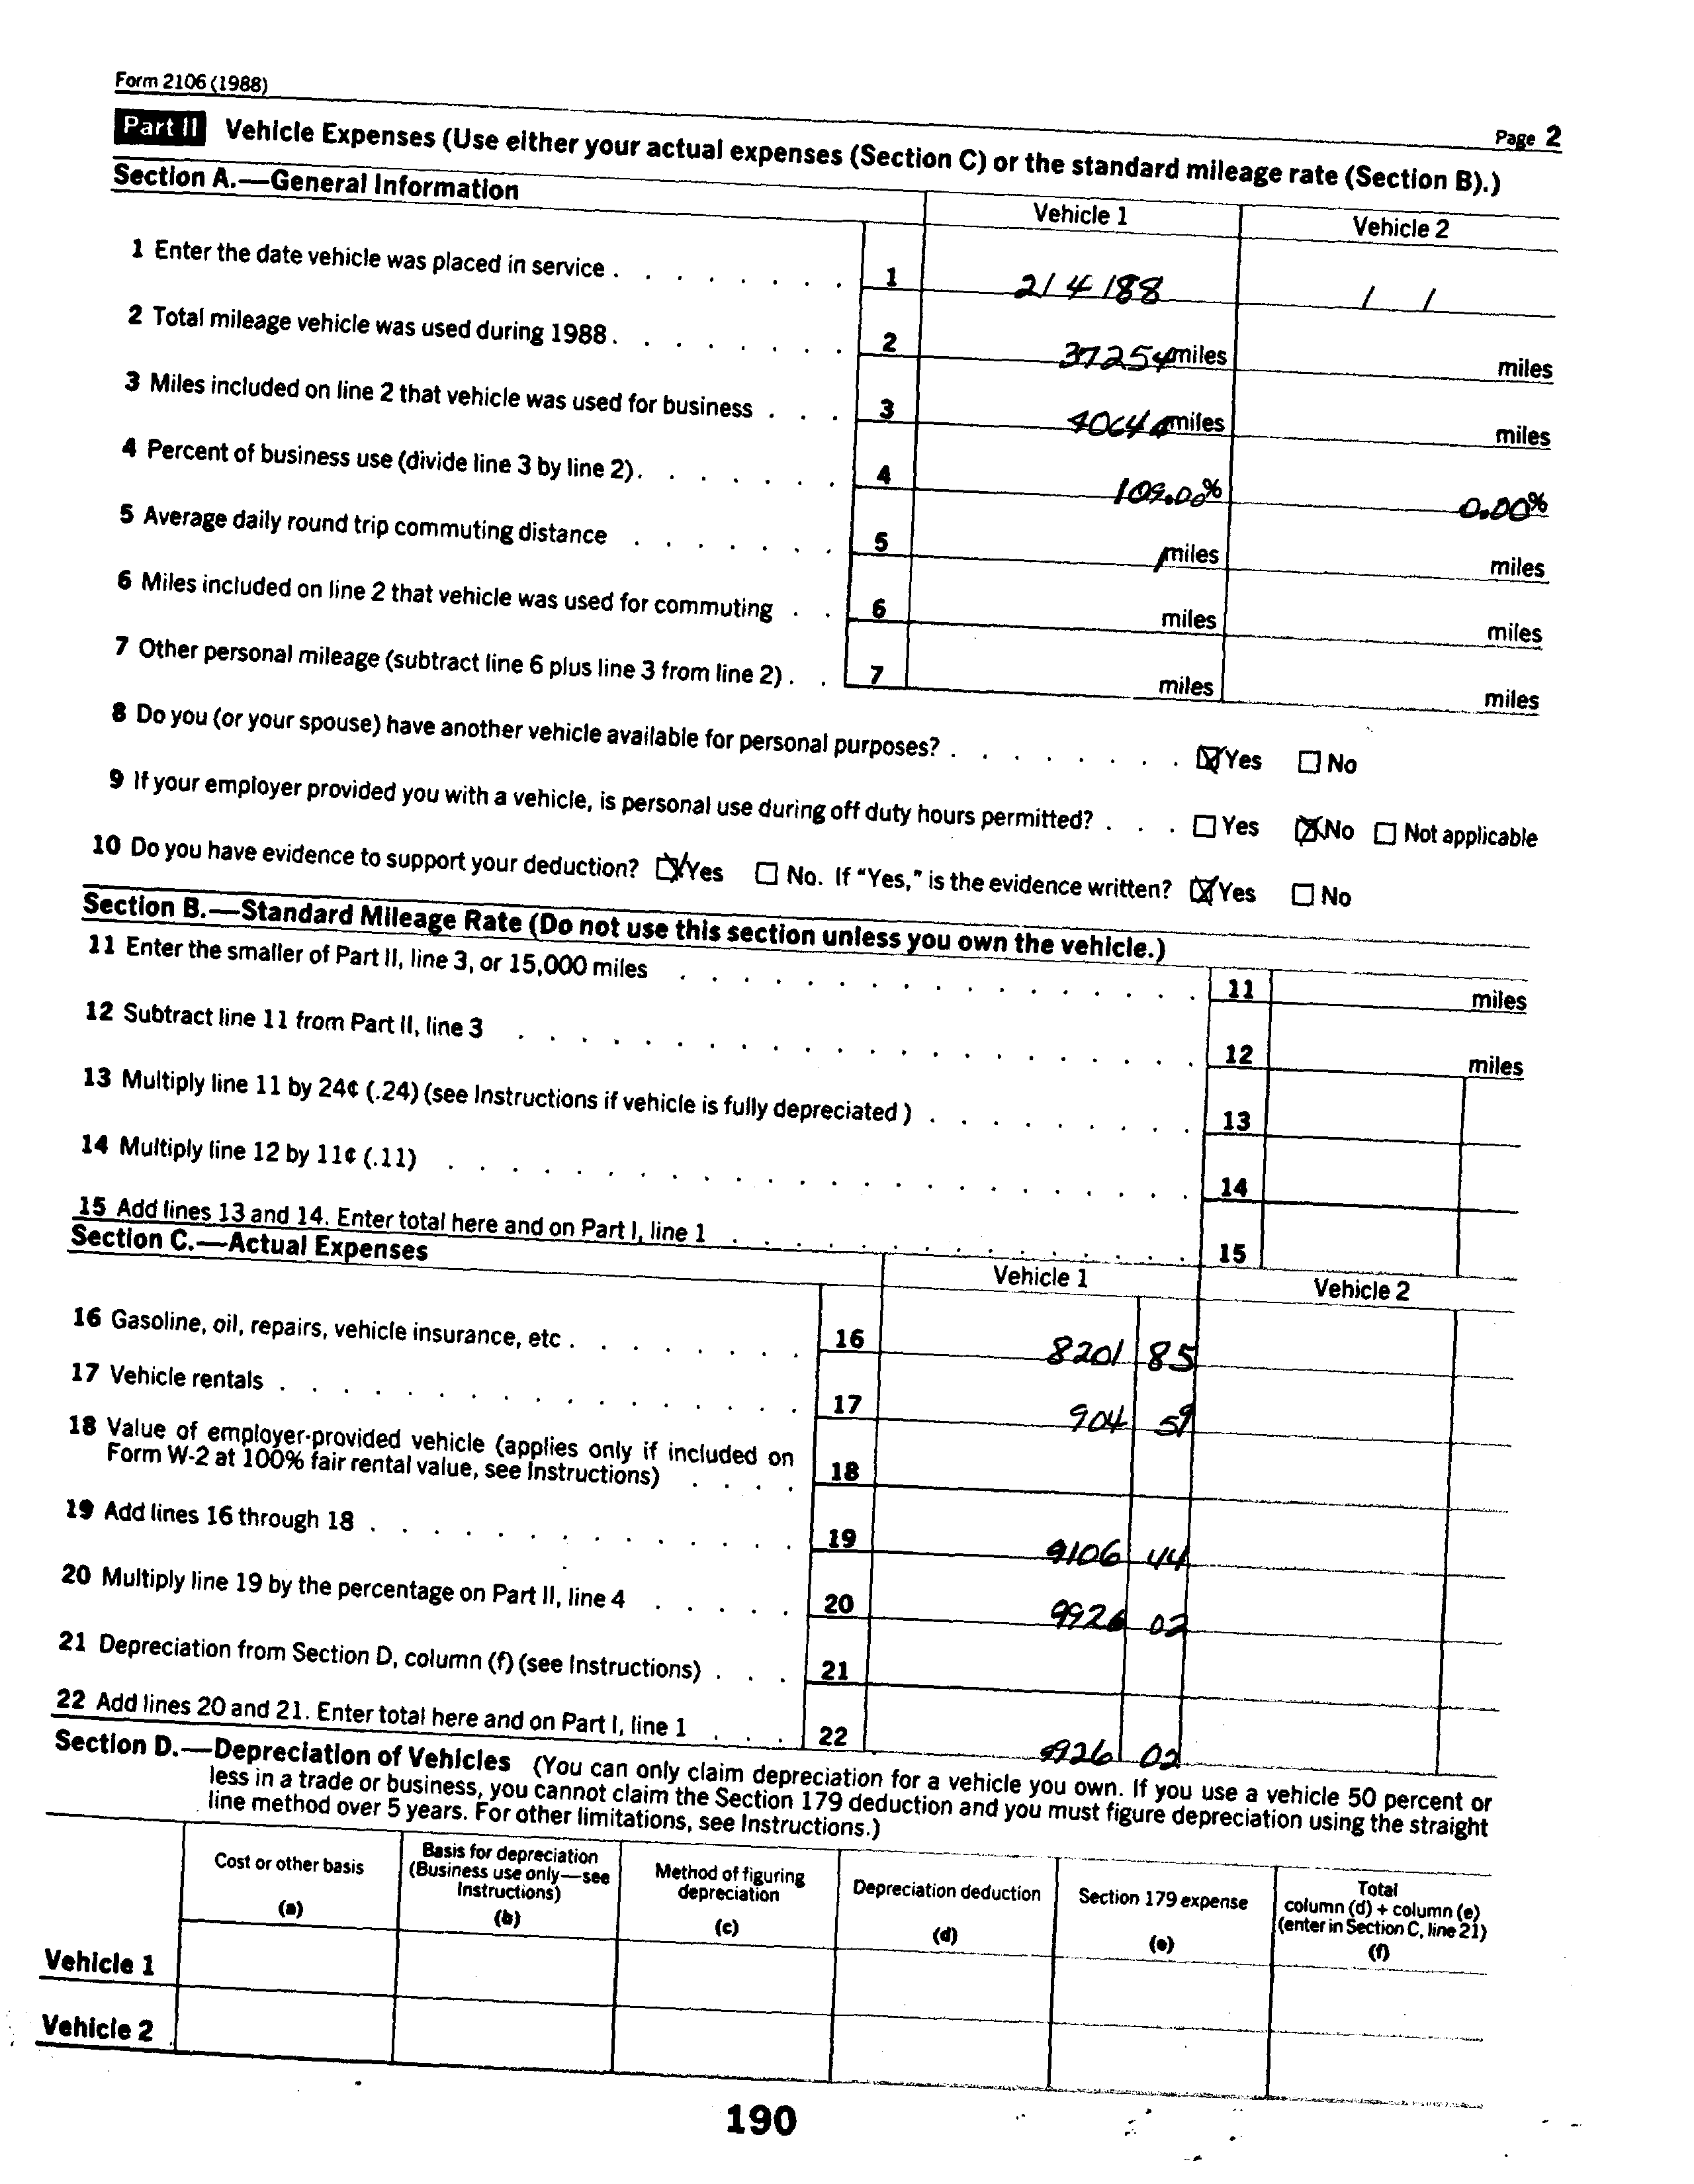 Form 2106 (1988)
Page 2
Part II Vehicle Expenses (Use either your actual expenses (Section C) or the standard mileage rate (Section B).)
Section A.—General Information
Vehicle 1 Vehicle 2
1 Enter the date vehicle was placed in service . . . . . . . . 1 2/4/88 / /
2 Total mileage vehicle was used during 1988 . . . . . . . . 2 37254 miles miles
3 Miles included on line 2 that vehicle was used for business . . . 3 miles miles
4 Percent of business use (divide line 3 by line 2) . . . . . . . 4 109.00% 0.00%
5 Average daily round trip commuting distance . . . . . . . 5 miles miles
6 Miles included on line 2 that vehicle was used for commuting . . 6 miles miles
7 Other personal mileage (subtract line 6 plus line 3 from line 2) . . 7 miles miles
8 Do you (or your spouse) have another vehicle available for personal purposes? . . . . . . . . ☒ Yes ☐ No
9 If your employer provided you with a vehicle, is personal use during off duty hours permitted? . . . ☐ Yes ☒ No ☐ Not applicable
10 Do you have evidence to support your deduction? ☒ Yes ☐ No. If "Yes," is the evidence written? ☒ Yes ☐ No
Section B.—Standard Mileage Rate (Do not use this section unless you own the vehicle.)
11 Enter the smaller of Part II, line 3, or 15,000 miles . . . . . . . . . . . . . . . . . 11 miles
12 Subtract line 11 from Part II, line 3 . . . . . . . . . . . . . . . . . . . . . . 12 miles
13 Multiply line 11 by 24¢ (.24) (see Instructions if vehicle is fully depreciated ) . . . . . . . . . 13
14 Multiply line 12 by 11¢ (.11) . . . . . . . . . . . . . . . . . . . . . . . . 14
15 Add lines 13 and 14. Enter total here and on Part I, line 1 . . . . . . . . . . . . . . . 15
Section C.—Actual Expenses
Vehicle 1 Vehicle 2
16 Gasoline, oil, repairs, vehicle insurance, etc . . . . . . . . 16 8201 85
17 Vehicle rentals . . . . . . . . . . . . . . . . . 17 904 59
18 Value of employer-provided vehicle (applies only if included on
Form W-2 at 100% fair rental value, see Instructions) . . . . 18
19 Add lines 16 through 18 . . . . . . . . . . . . . . 19 9106 44
20 Multiply line 19 by the percentage on Part II, line 4 . . . . . 20 9926 02
21 Depreciation from Section D, column (f) (see Instructions) . . . 21
22 Add lines 20 and 21. Enter total here and on Part I, line 1 . . . 22 9926 02
Section D.—Depreciation of Vehicles (You can only claim depreciation for a vehicle you own. If you use a vehicle 50 percent or
less in a trade or business, you cannot claim the Section 179 deduction and you must figure depreciation using the straight
line method over 5 years. For other limitations, see Instructions.)
Cost or other basis
(a)
Basis for depreciation
(Business use only—see
Instructions)
(b)
Method of figuring
depreciation
(c)
Depreciation deduction
(d)
Section 179 expense
(e)
Total
column (d) + column (e)
(enter in Section C, line 21)
(f)
Vehicle 1
Vehicle 2
190